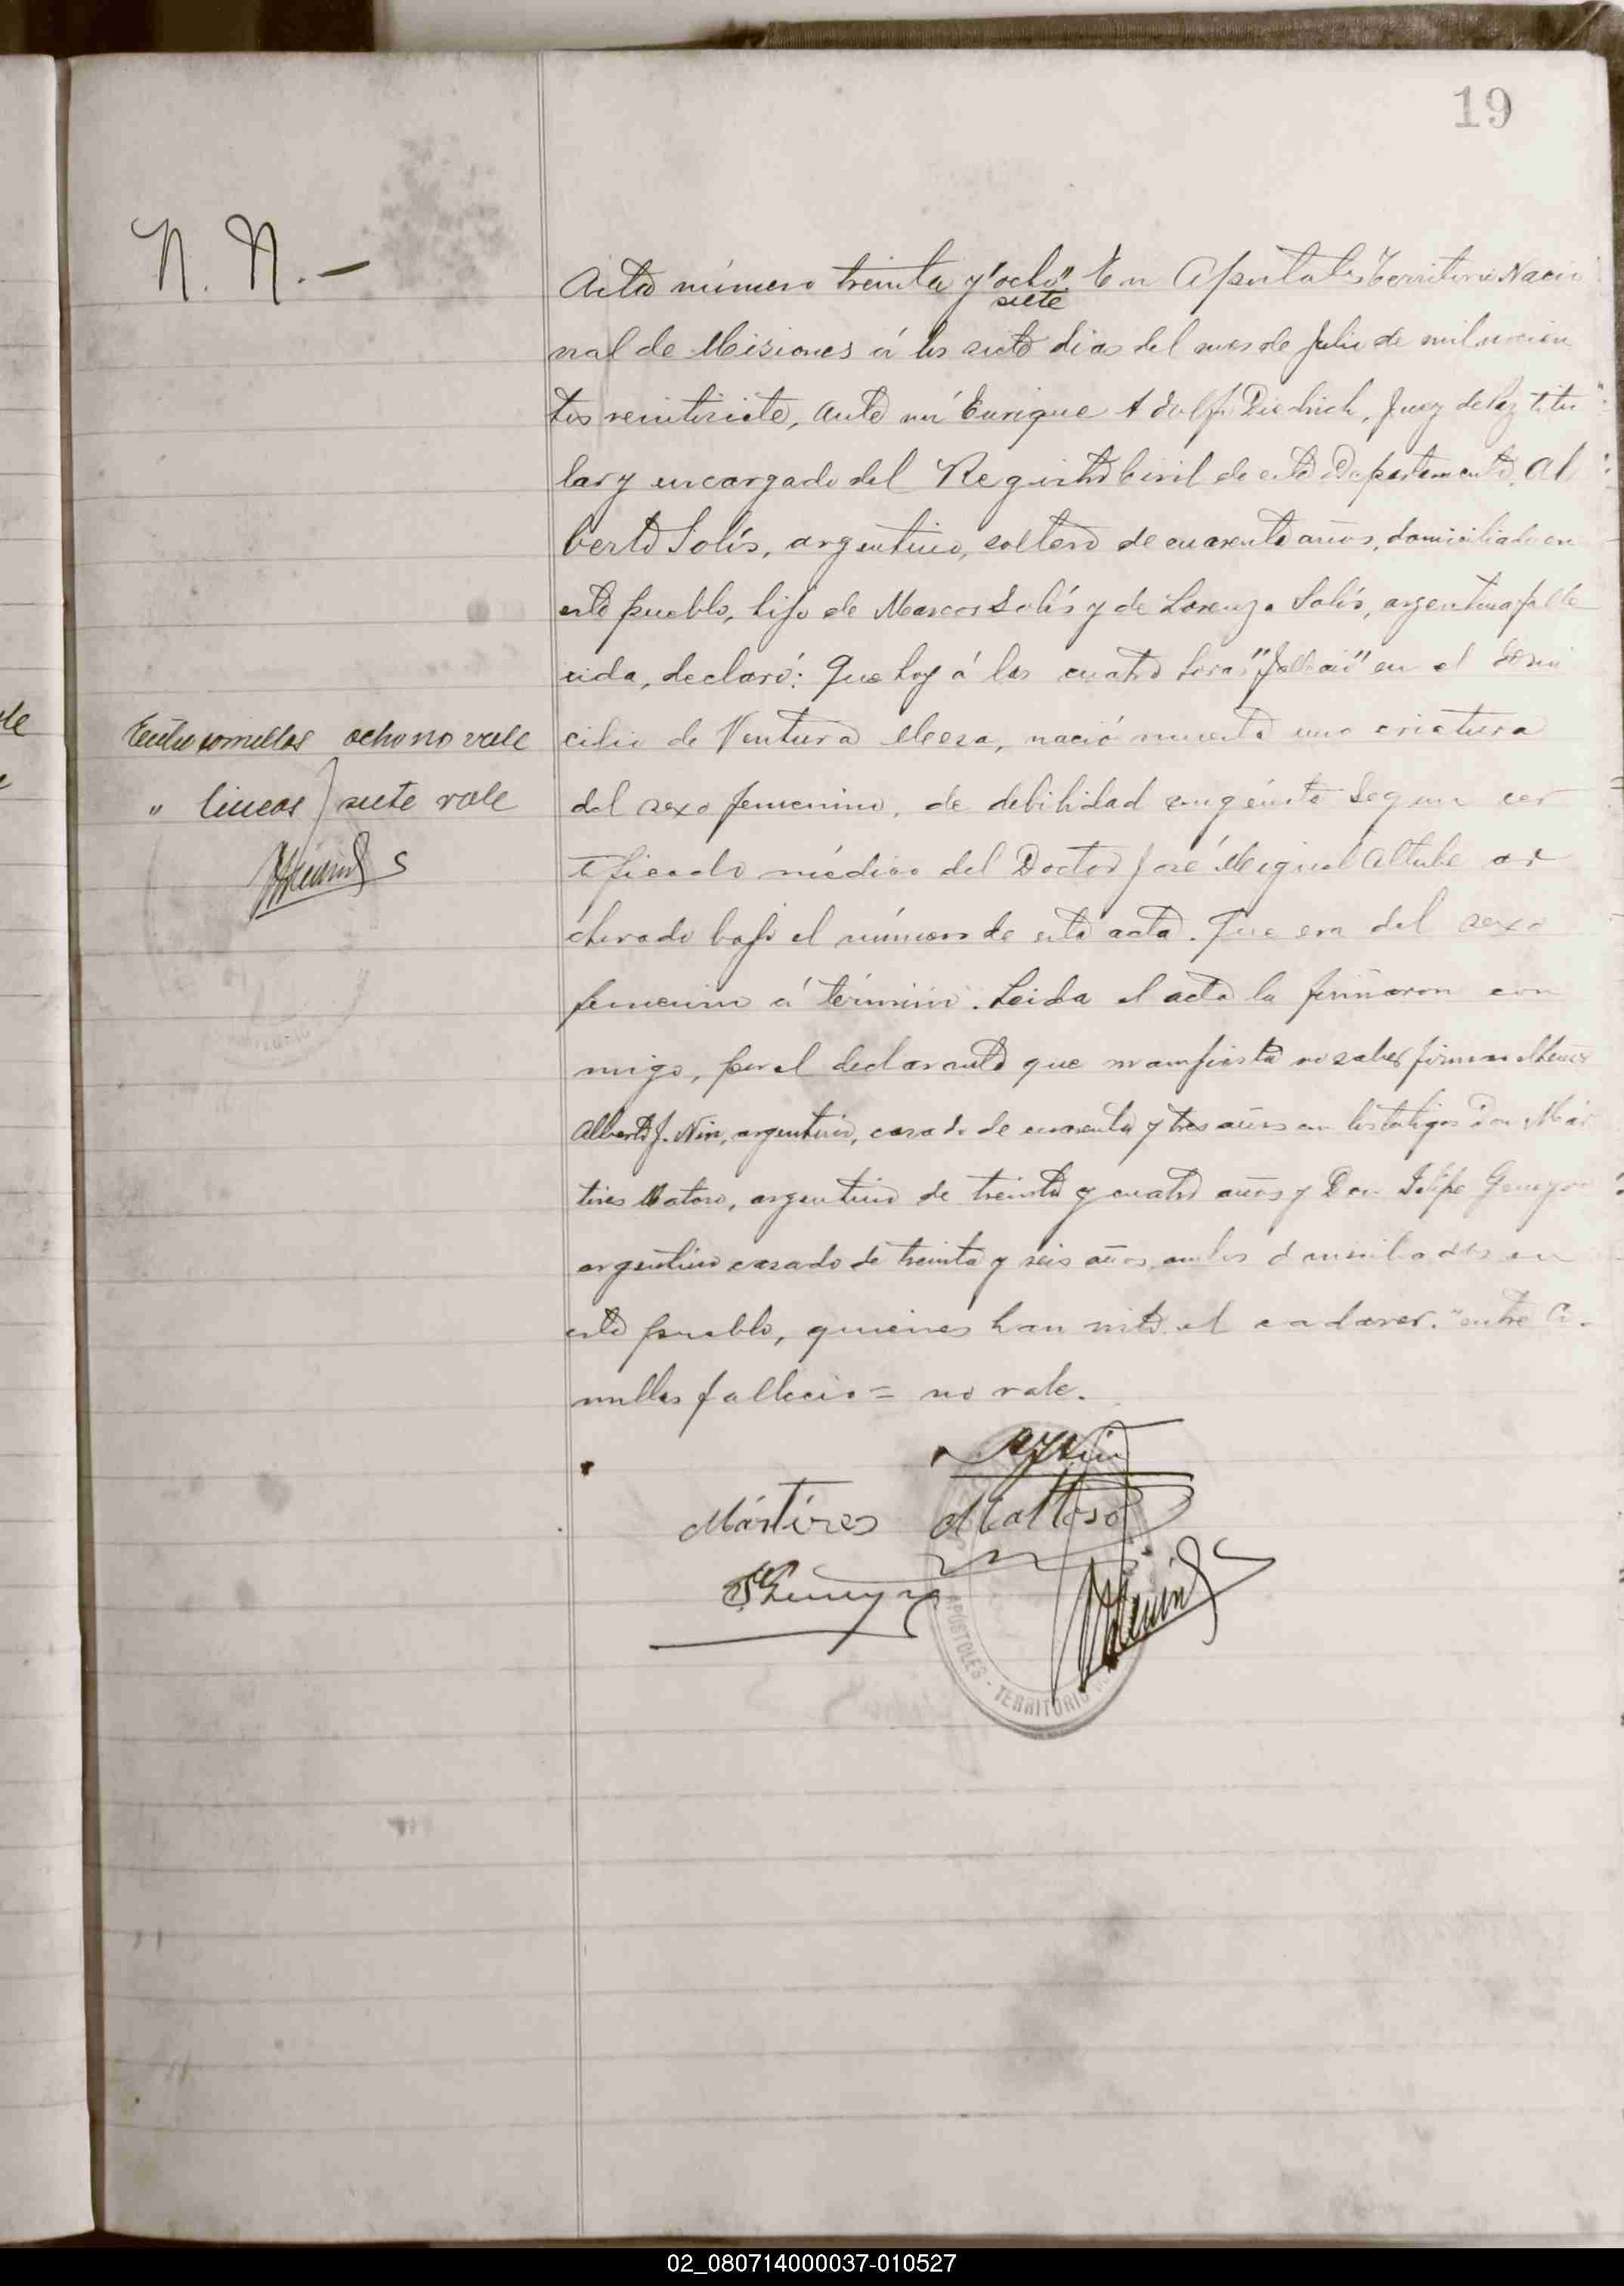 19
N. N.-
Acta número treinta y "ocho". En Apostoles Territorio Nacio
siete
nal de Misiones á los siete dias del mes de Julio de mil novecien
tos veintisiete, ante mi Enrique Adolfo Diedrich, Juez de Paz titu
lar y encargado del Registro Civil de este Departamento, Al
berto Solís, argentino, soltero de cuarenta años, domiciliado en
este pueblo, hijo de Marcos Solís y de Lorenza Solís, argentina falle
cida, declaró: Que hoy á las cuatro horas "falleció" en el domi
cilio de Ventura Meza, nació muerta una criatura
del sexo femenino, de debilidad congénita segun cer
tificado médico del Doctor José Miguel Altube ar
chivado bajo el número de esta acta. Que era del sexo
femenino á término. Leida el acta la firmaron con
migo, por el declarante que manifiesta no saber firmar el Señor
Alberto J. Nin, argentino, casado de cuarenta y tres años con los testigos Don Már
tires Matoso, argentino de treinta y cuatro años y Don Felipe
argentino casado de treinta y seis años, ambos domiciliados en
este pueblo, quienes han visto el cadaver. "entre Co-
millas falleció = no vale.
Entre comillas ocho no vale
" lineas siete vale
AJNin
Mártires Mattoso
APOSTOLES - TERRITORIO
02_080714000037-010527